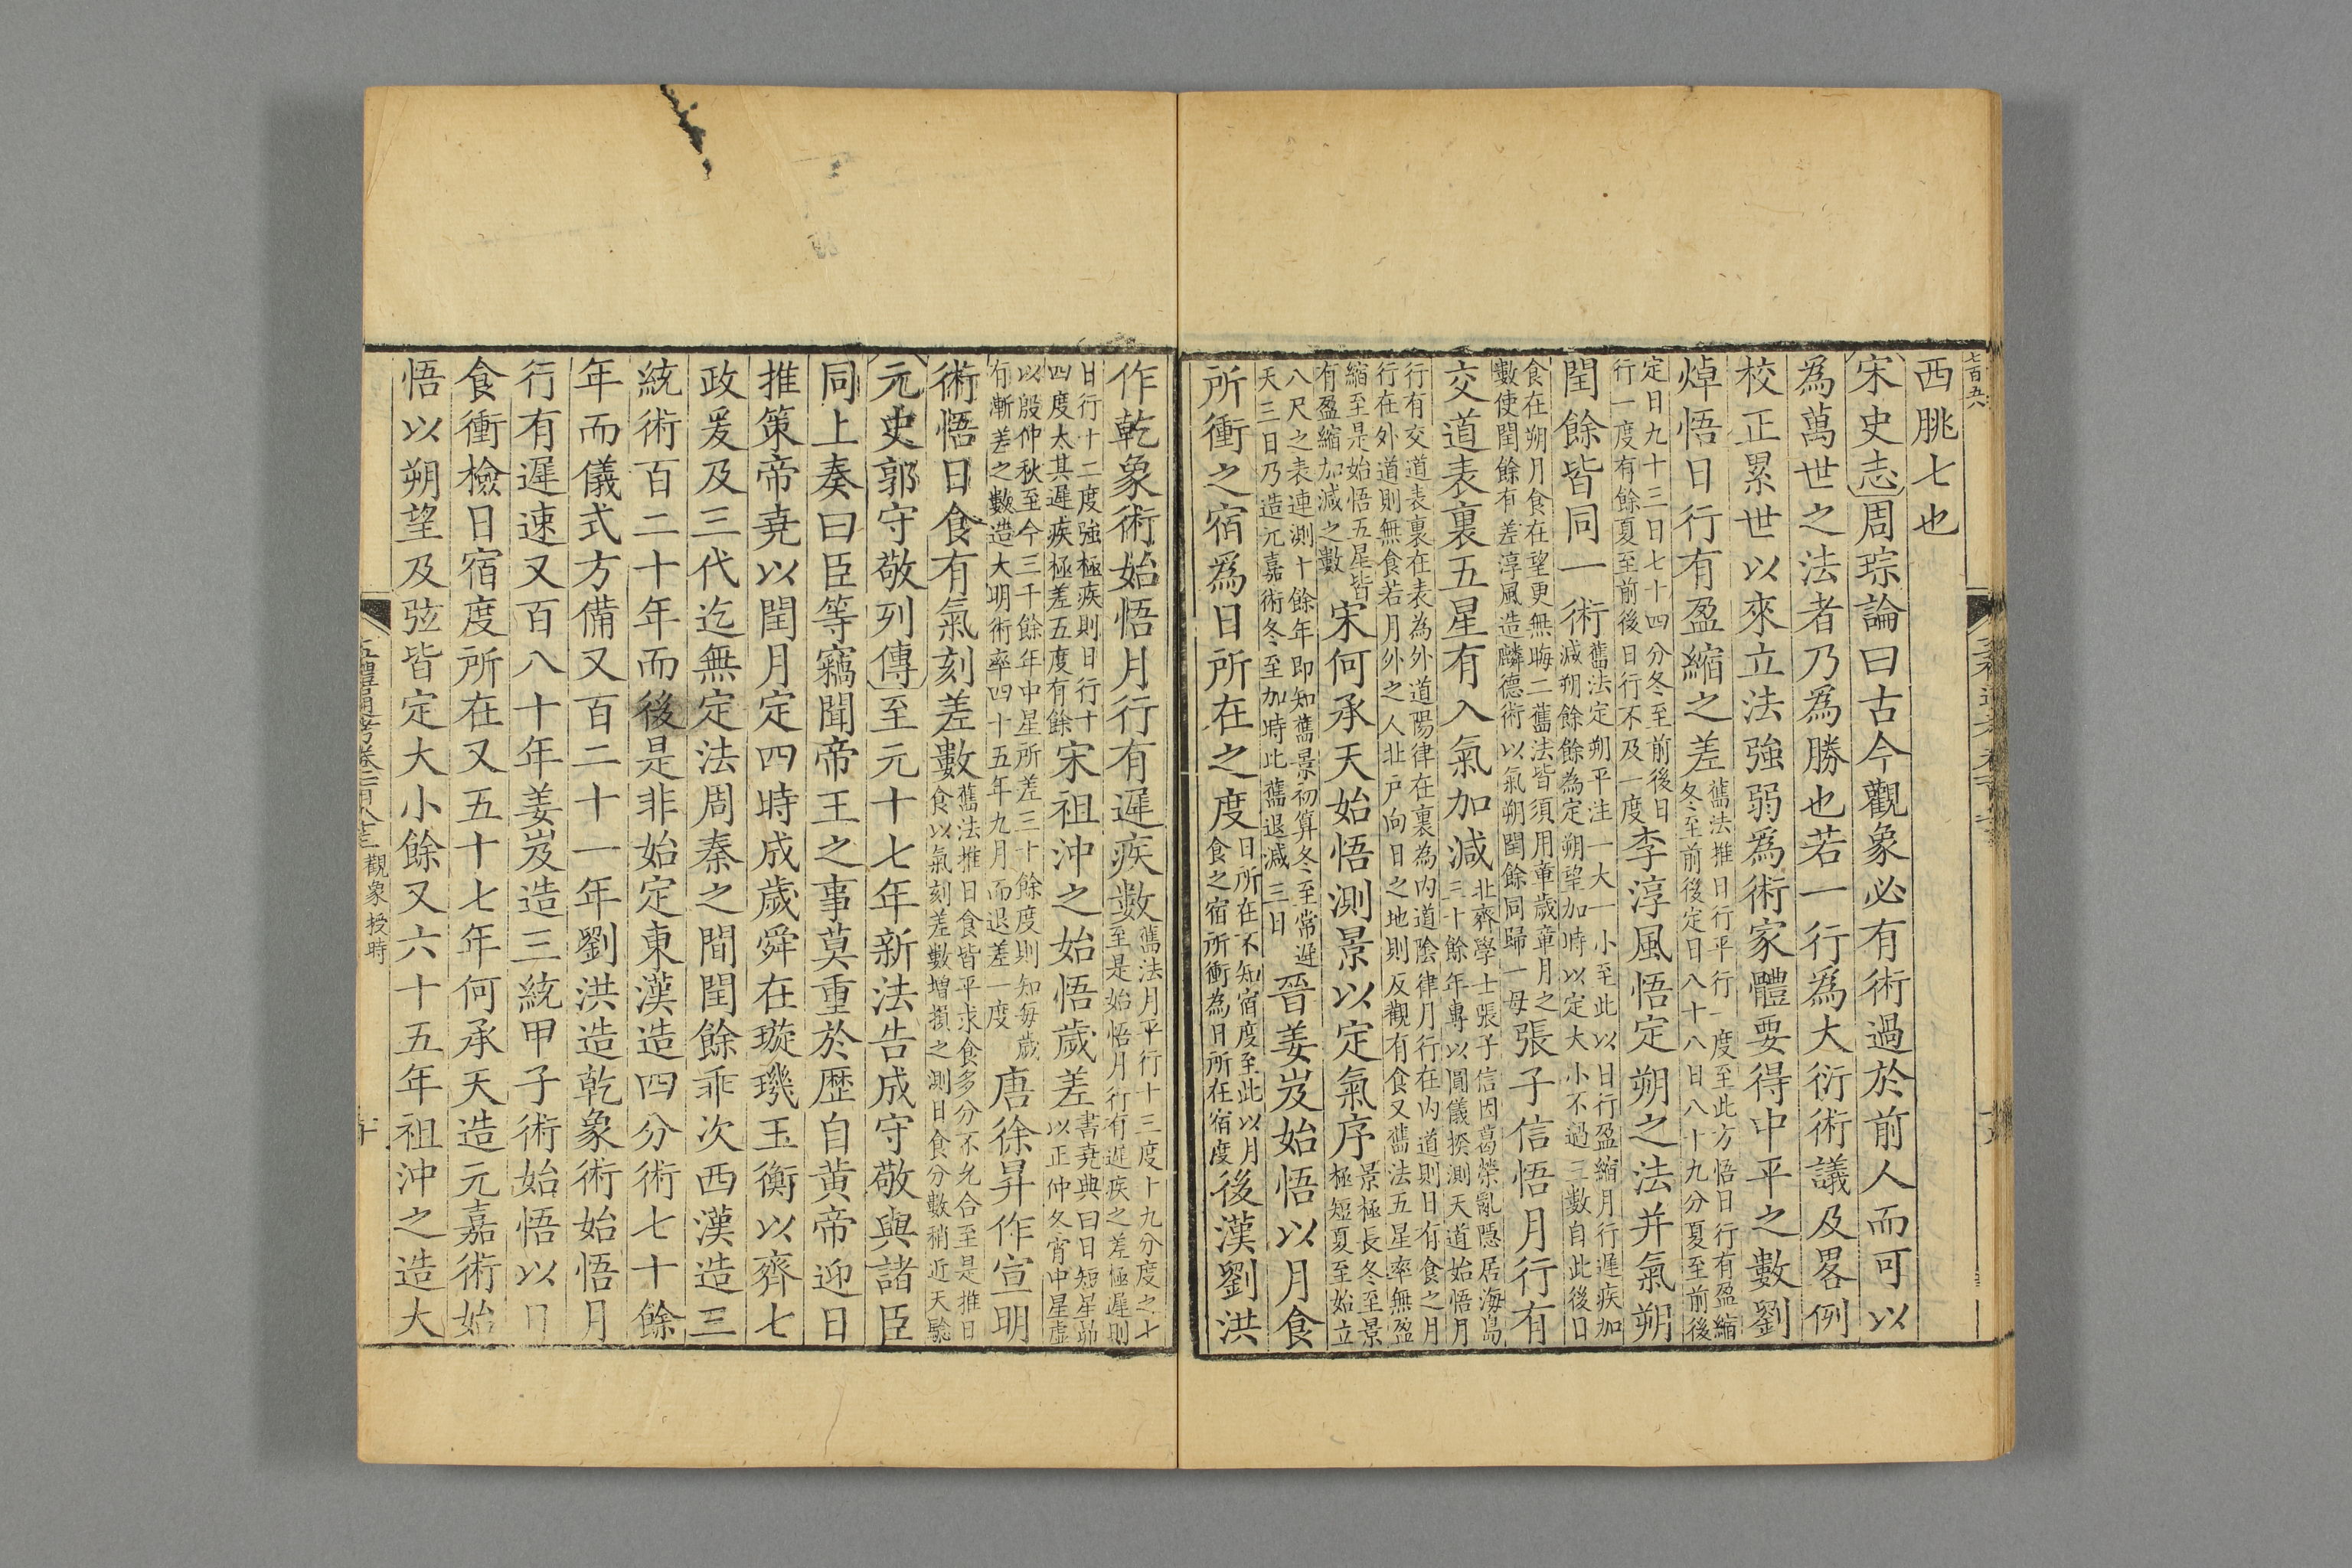 七百五六
西朓七也
宋史志周琮論曰古今觀象必有術過於前人而可以
爲萬世之法者乃爲勝也若一行爲大衍術議及畧例
校正累世以來立法強弱爲術家體要得中平之數劉
焯悟日行有盈縮之差舊法推日行平行一度至此方悟日行有盈縮
冬至前後定日八十八日八十九分夏至前後
定日九十三日七十四分冬至前後日
行一度有餘夏至前後日行不及一度李淳風悟定朔之法并氣朔
閏餘皆同一術舊法定朔平注一大一小至此以日行盈縮月行遲疾加
減朔餘餘為定朔望加時以定大小不過三數自此後日
食在朔月食在望更無晦二舊法皆須用章歲章月之
數使閏餘有差淳風造麟德術以氣朔閏餘同歸一母張子信悟月行有
交道表裏五星有入氣加減北齊學士張子信因葛榮亂隱居海島
三十餘年專以圓儀揆測天道始悟月
行有交道表裏在表為外道陽律在裏為內道陰律月行在內道則日有食之月
行在外道則無食若月外之人北戶向日之地則反觀有食又舊法五星率無盈
縮至是始悟五星皆
有盈縮加減之數宋何承天始悟測景以定氣序景極長冬至景
極短夏至始立
八尺之表連測十餘年即知舊景初算冬至常遲
天三日乃造元嘉術冬至加時此舊退減三日晉姜岌始悟以月食
所衝之宿爲日所在之度日所在不知宿度至此以月
食之宿所衝為日所在宿度後漢劉洪
作乾象術始悟月行有遲疾數舊法月平行十三度十九分度之七
至是始悟月行有遲疾之差極遲則
日行十二度強極疾則日行十
四度太其遲疾極差五度有餘宋祖沖之始悟歲差書堯典曰日短星昴
以正仲冬宵中星虛
以殷仲秋至今三千餘年中星所差三十餘度則知每歲
有漸差之數造大明術率四十五年九月而退差一度唐徐昇作宣明
術悟日食有氣刻差數舊法推日食皆平求食多分不允合至是推日
食以氣刻差數增損之測日食分數稍近天驗
元史郭守敬列傳至元十七年新法告成守敬與諸臣
同上奏曰臣等竊聞帝王之事莫重於歷自黃帝迎日
推策帝堯以閏月定四時成歲舜在璇璣玉衡以齊七
政爰及三代迄無定法周秦之間閏餘乖次西漢造三
統術百二十年而後是非始定東漢造四分術七十餘
年而儀式方備又百二十一年劉洪造乾象術始悟月
行有遲速又百八十年姜岌造三統甲子術始悟以月
食衝檢日宿度所在又五十七年何承天造元嘉術始
悟以朔望及弦皆定大小餘又六十五年祖沖之造大
觀象授時